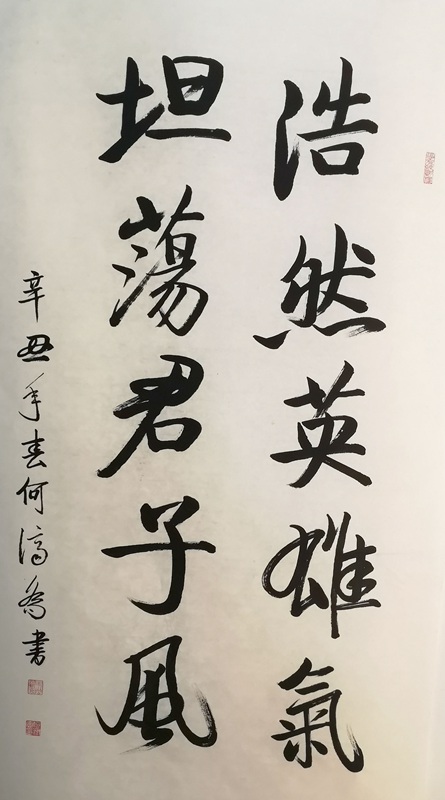 浩然英雄氣
坦蕩君子風
辛丑年春何滈喬書